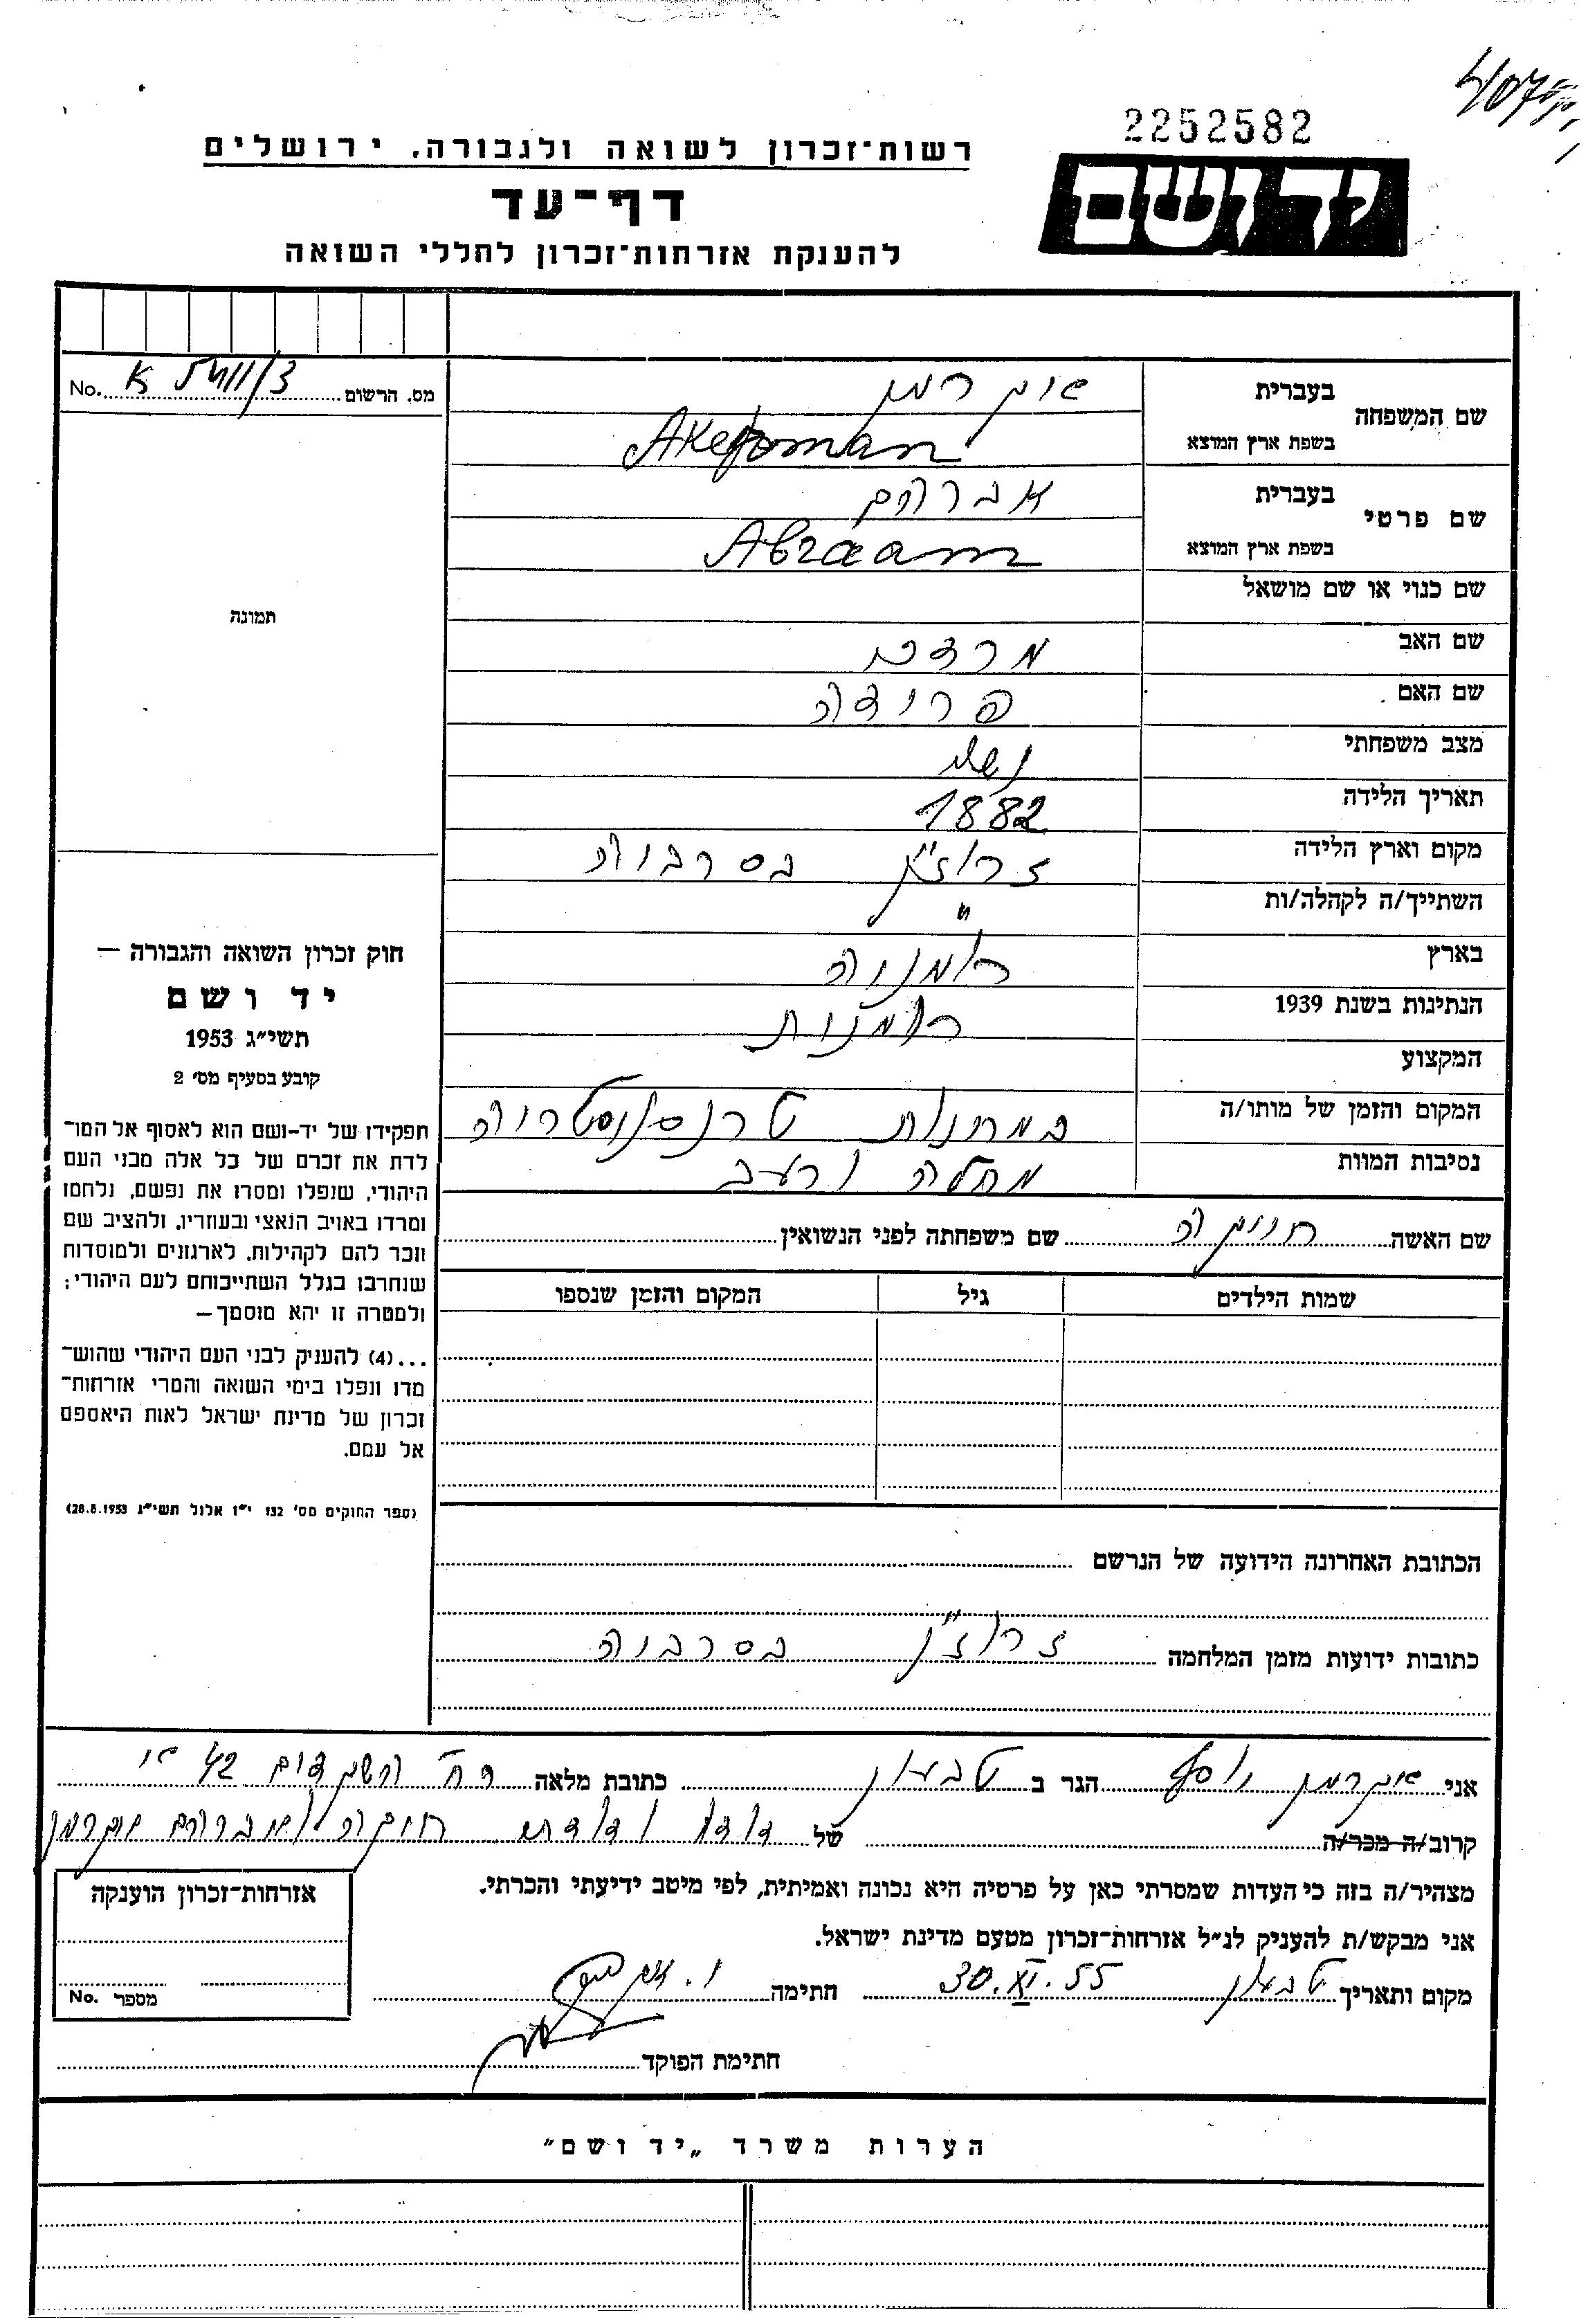 2252582
רשות־זכרון לשואה ולגבורה, ירושלים
יד ושם
דף־עד
להענקת אזרחות־זכרון לחללי השואה
מס. הרשום No.
שם המשפחה
בעברית אקרמן
בשפת ארץ המוצא Akerman
שם פרטי
בעברית אברהם
בשפת ארץ המוצא Abraam
תמונה
שם כנוי או שם מושאל
שם האב מרדכי
שם האם פרידה
מצב משפחתי נשוי
תאריך הלידה 1882
מקום וארץ הלידה בסרביה
השתייך/ה לקהלה/ות "
בארץ רומניה
הנתינות בשנת 1939 רומנית
המקצוע
המקום והזמן של מותו/ה במחנות טרנסניסטריה
נסיבות המוות מחלה ורעב
שם האשה שם משפחתה לפני הנשואין
שמות הילדים גיל המקום והזמן שנספו
חוק זכרון השואה והגבורה —
יד ושם
תשי״ג 1953
קובע בסעיף מס׳ 2
תפקידו של יד-ושם הוא לאסוף אל המו־
לדת את זכרם של כל אלה מבני העם
היהודי, שנפלו ומסרו את נפשם, נלחמו
ומרדו באויב הנאצי ובעוזריו, ולהציב שם
וזכר להם לקהילות, לארגונים ולמוסדות
שנחרבו בגלל השתייכותם לעם היהודי;
ולמטרה זו יהא מוסמך—
...(4) להעניק לבני העם היהודי שהוש־
מדו ונפלו בימי השואה והמרי אזרחות־
זכרון של מדינת ישראל לאות היאספם
אל עמם.
(ספר החוקים מס׳ 132 י״ז אלול תשי״ג 28.8.1953)
הכתובת האחרונה הידועה של הנרשם
כתובות ידועות מזמן המלחמה בסרביה
אני אקרמן יוסף הגר ב טבעון כתובת מלאה רח' השקדים 42
קרוב/ה מכר/ה של דודי ודודתי ואברהם אקרמן
מצהיר/ה בזה כי העדות שמסרתי כאן על פרטיה היא נכונה ואמיתית, לפי מיטב ידיעתי והכרתי.
אני מבקש/ת להעניק לנ״ל אזרחות־זכרון מטעם מדינת ישראל.
מקום ותאריך טבעון 30.XI.55 חתימה
חתימת הפוקד
אזרחות־זכרון הוענקה
מספר No.
הערות משרד „יד ושם"